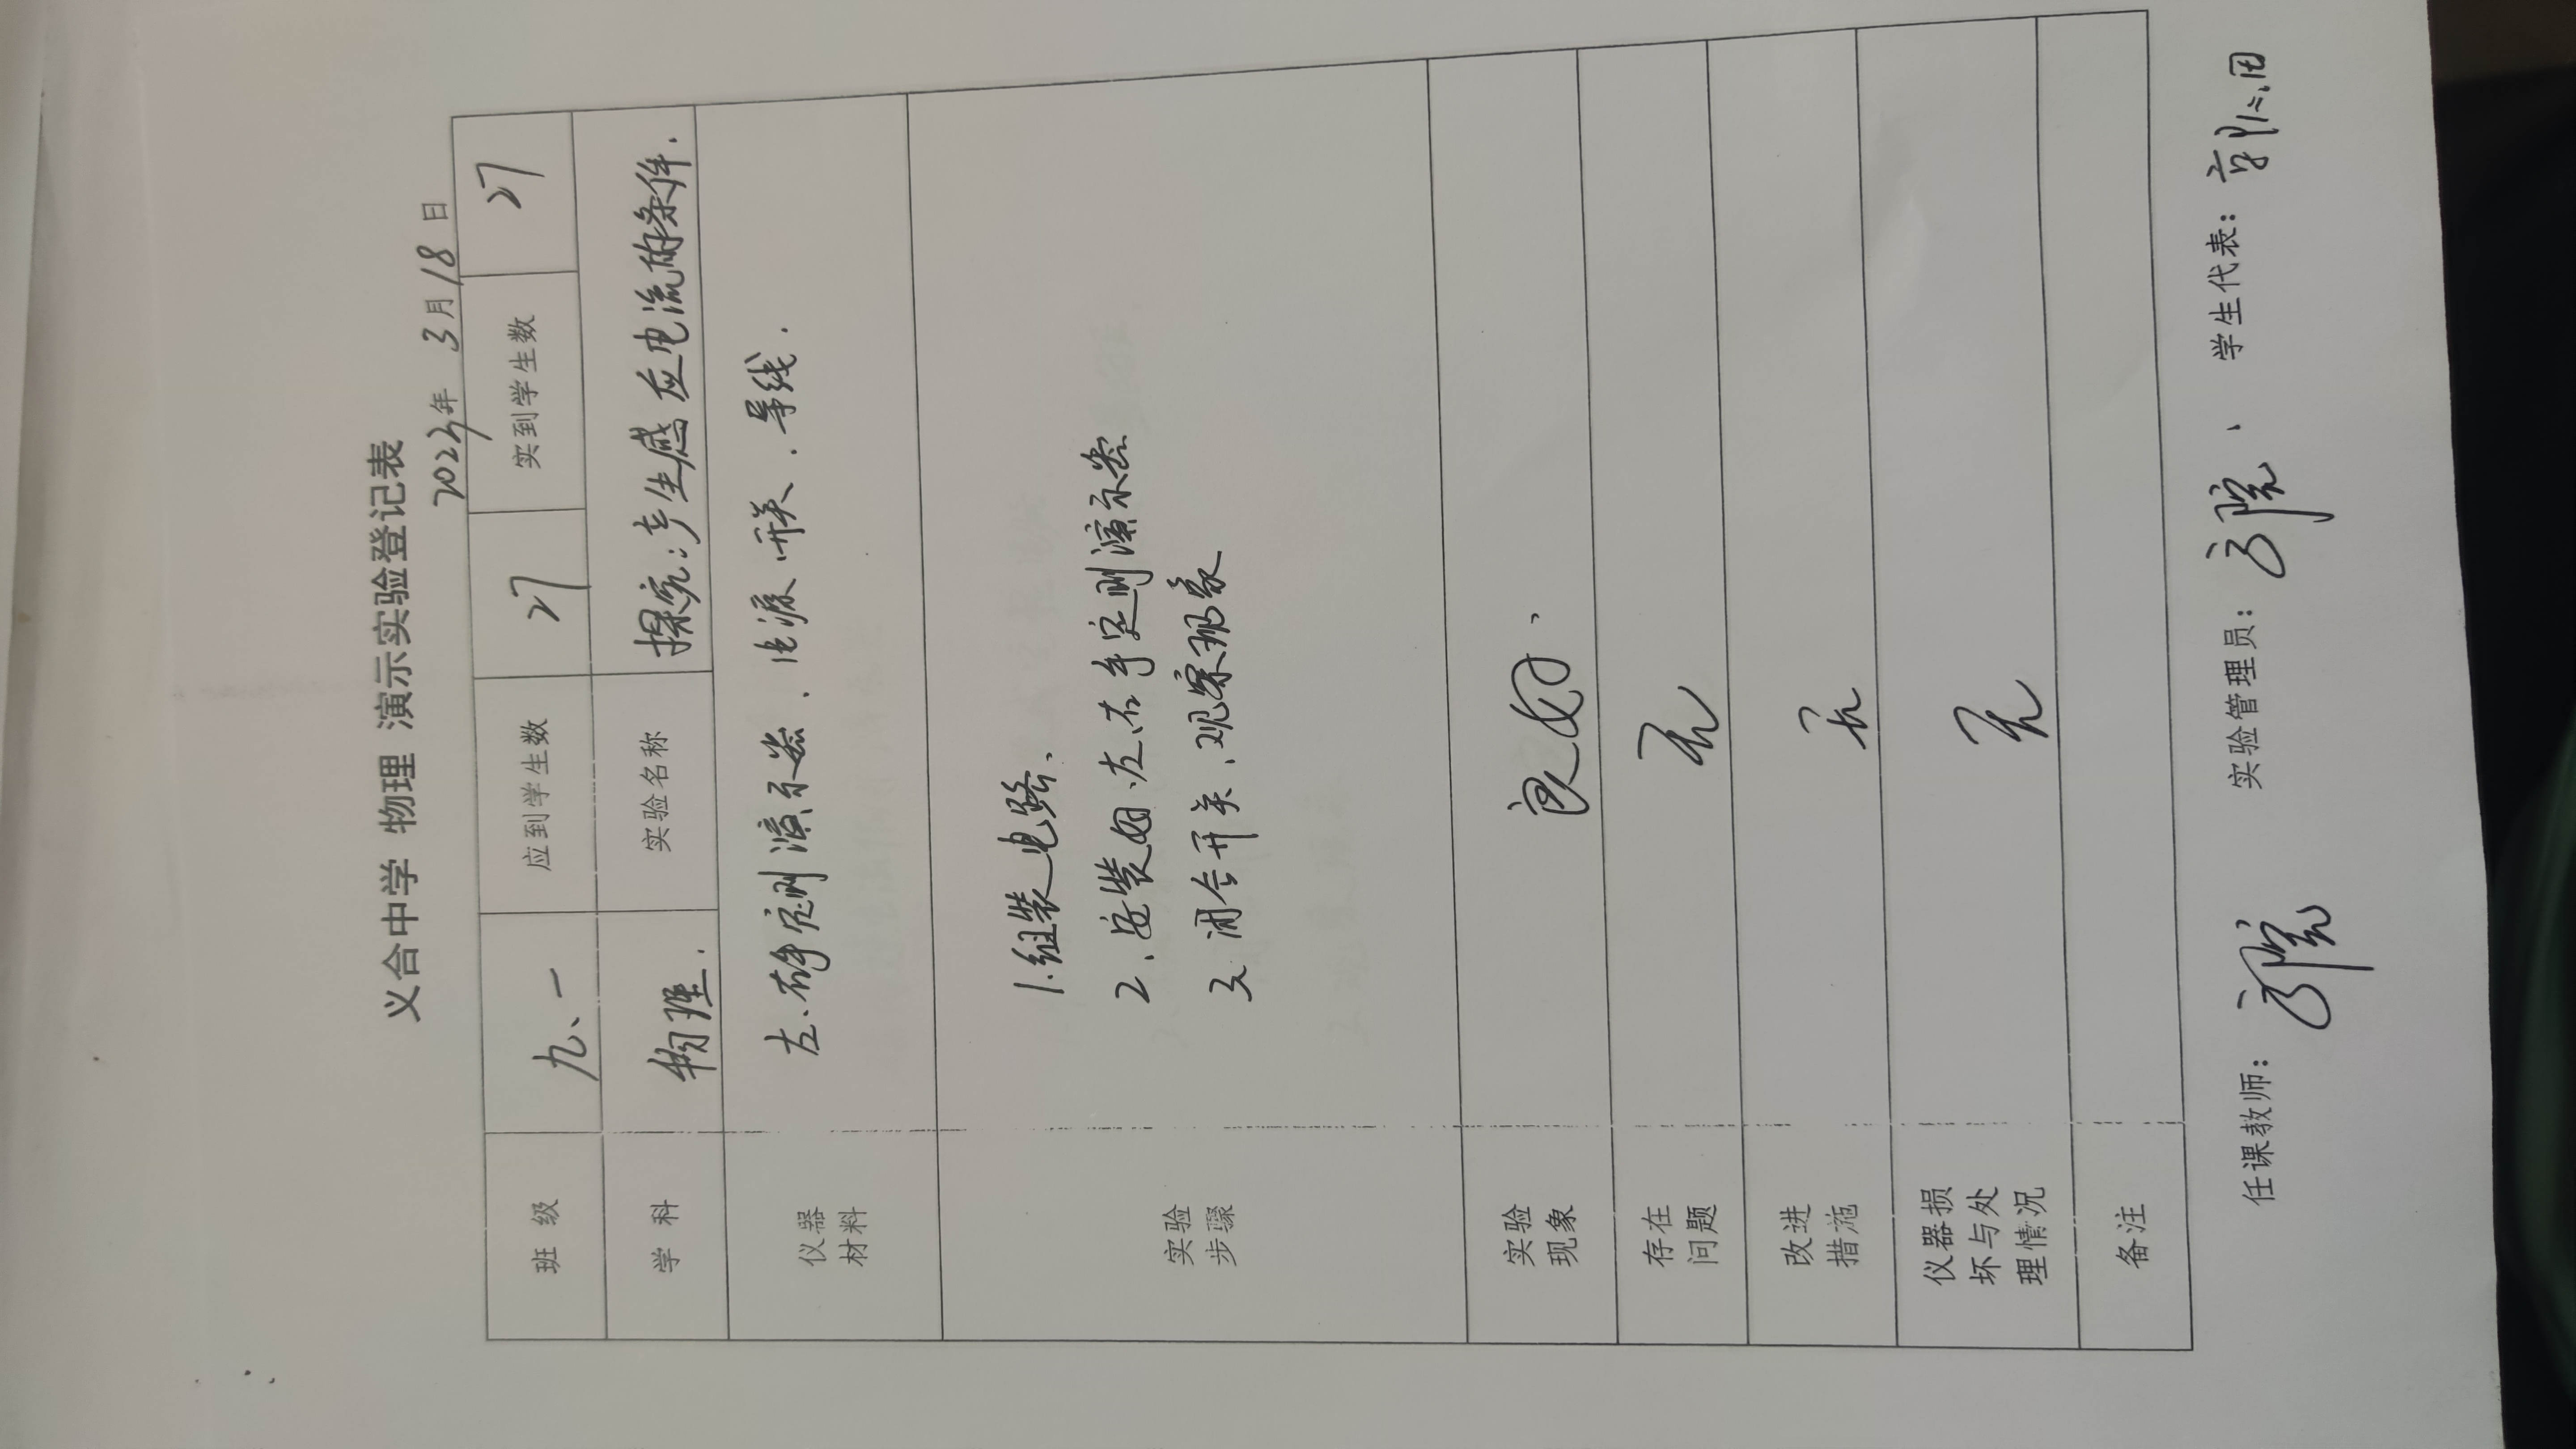 义合中学 物理 演示实验登记表
3月18日
班级 九、一 应到学生数 27 实到学生数 27
学科 物理. 实验名称 探究:产生感应电流的条件.
仪器材料 左、右手定则演示器、电源、开关、导线.
实验步骤
1.组装电路、
2、安装好左、右手定则演示器
3 闭合开关、观察现象
实验现象 良好、
存在问题 无
改进措施 无
仪器损坏与处理情况 无
备注
任课教师: 实验管理员: 学生代表: